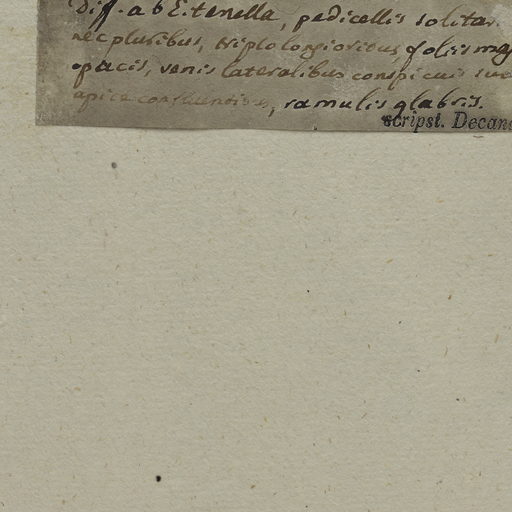 Diff. ab E. tenella, pedicellis solitar
nec pluribus, triplo longioribus foliis mag
opacis, venis lateralibus conspicuis
apice confluentibus, ramulis glabris.
scripst. Decan